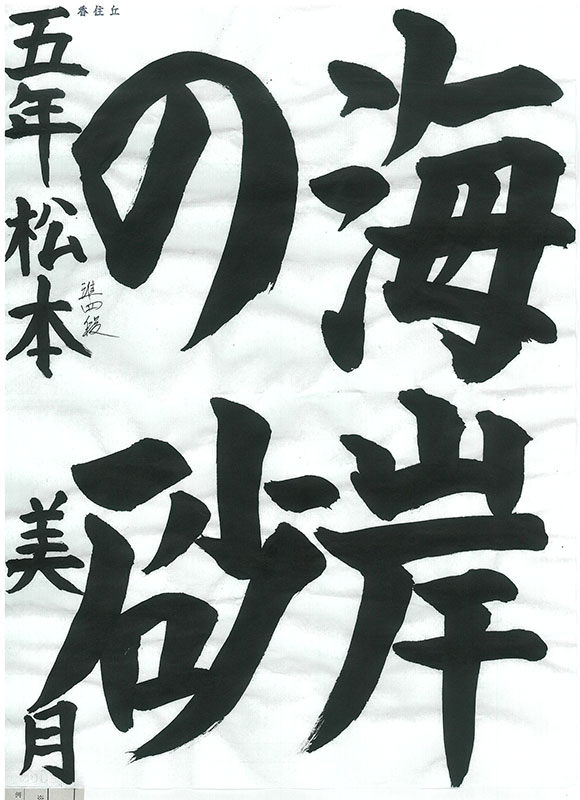 海岸
の砂
五年 松本 美月
準四段
香住丘